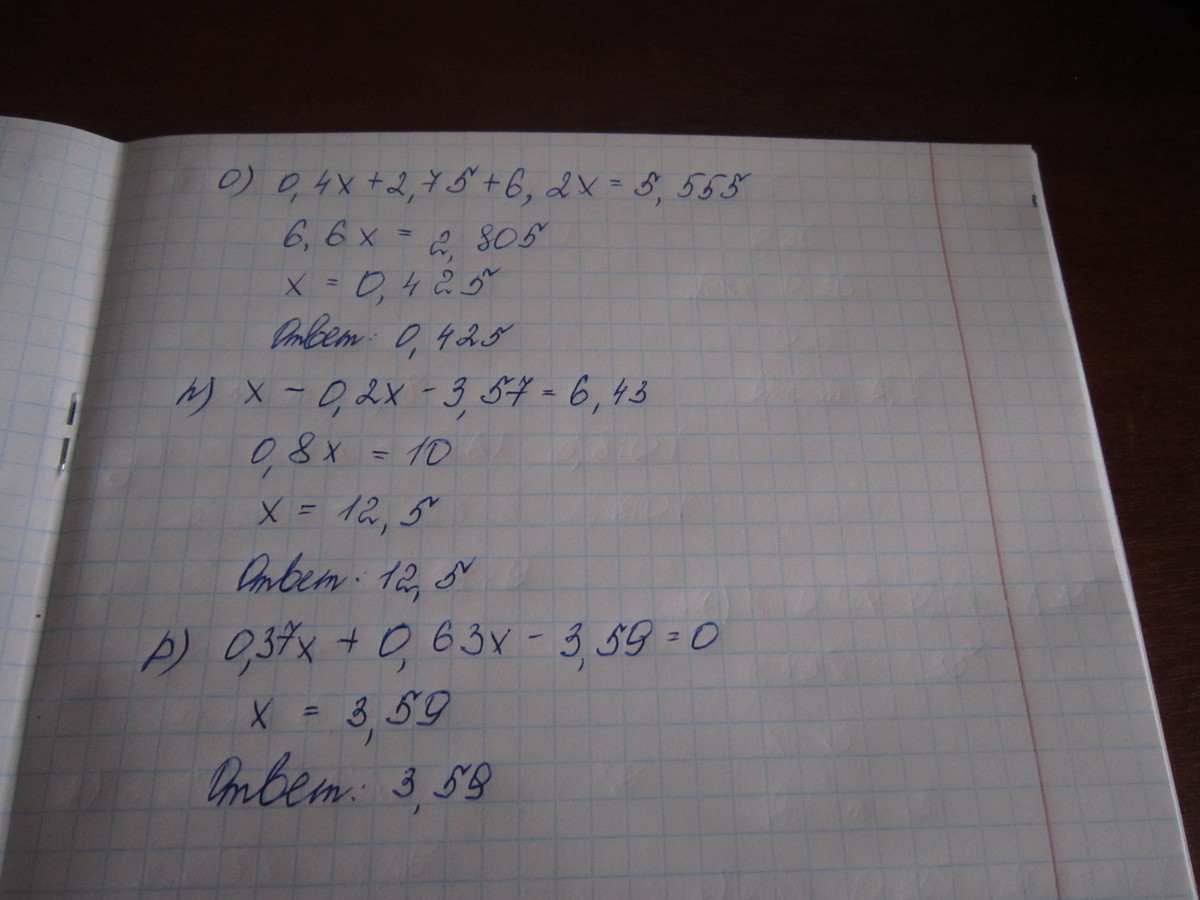 о) 0,4x + 2,75 + 6,2x = 5,555
6,6x = 2,805
x = 0,425
Ответ: 0,425
п) x - 0,2x - 3,57 = 6,43
0,8x = 10
x = 12,5
Ответ: 12,5
р) 0,37x + 0,63x - 3,59 = 0
x = 3,59
Ответ: 3,59